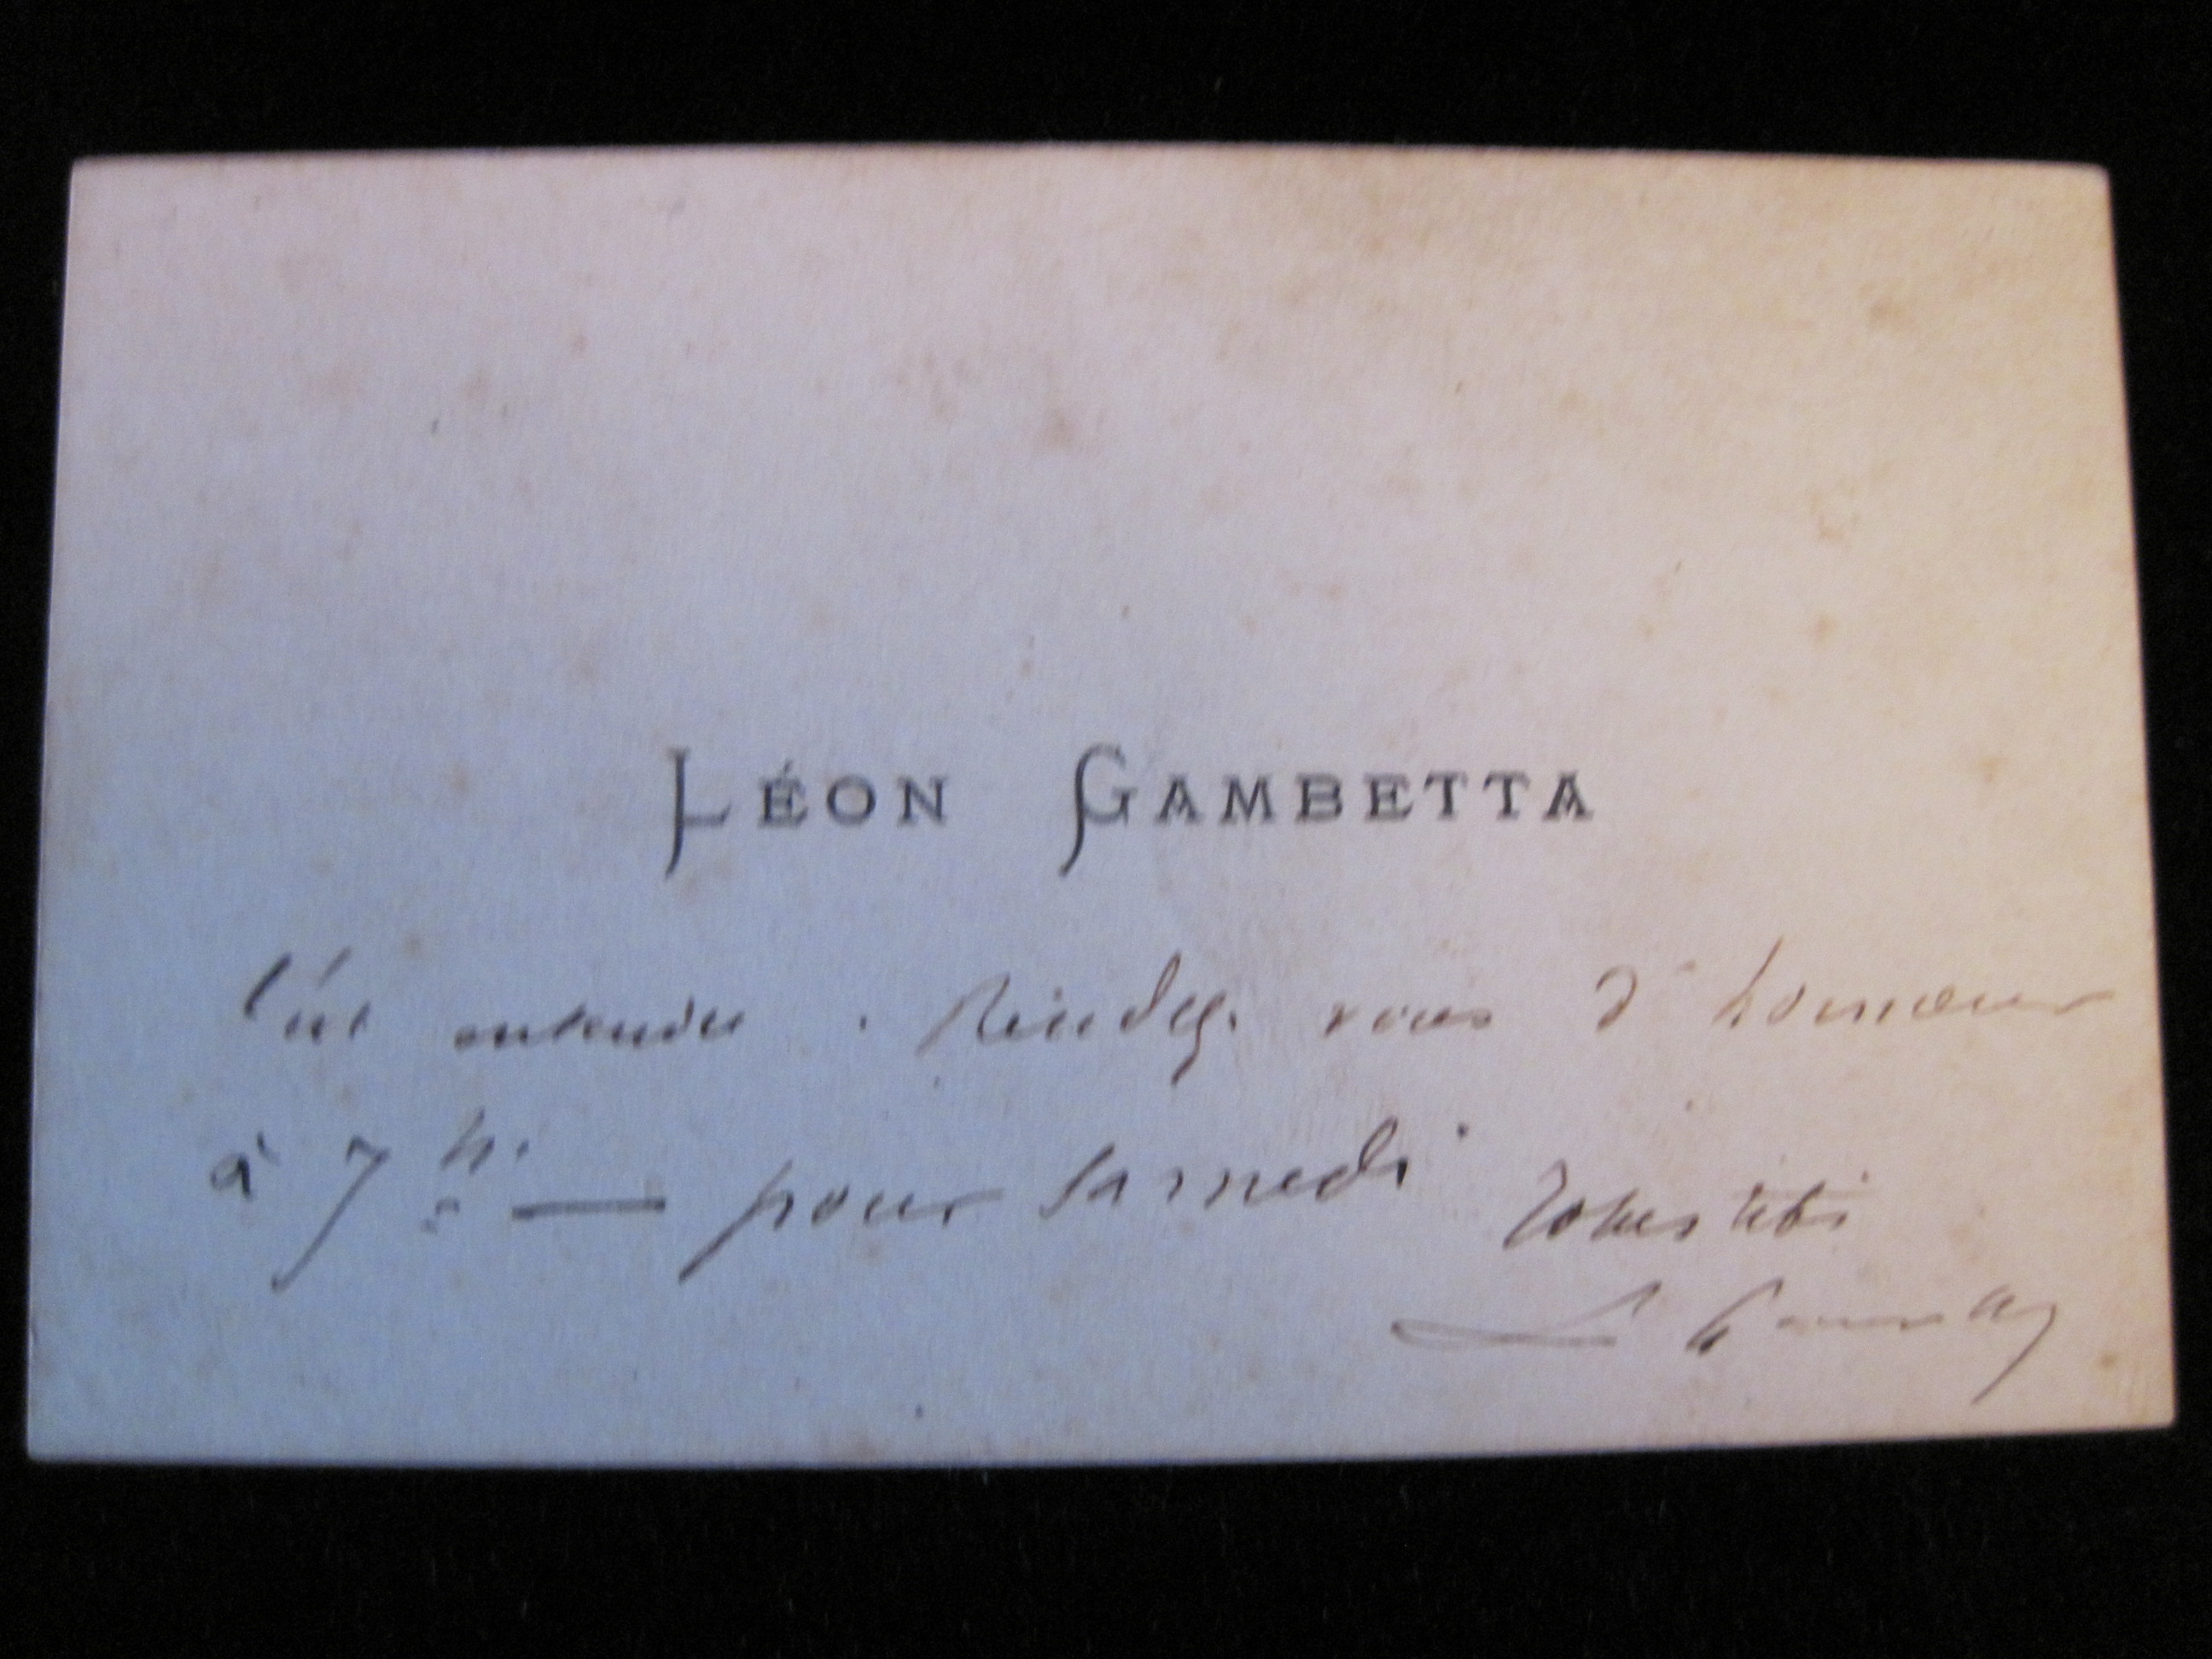 LÉON GAMBETTA
C'est entendu. Rendez-vous d'honneur
à 7 h. — pour samedi
Totus tibi
L. Gambetta